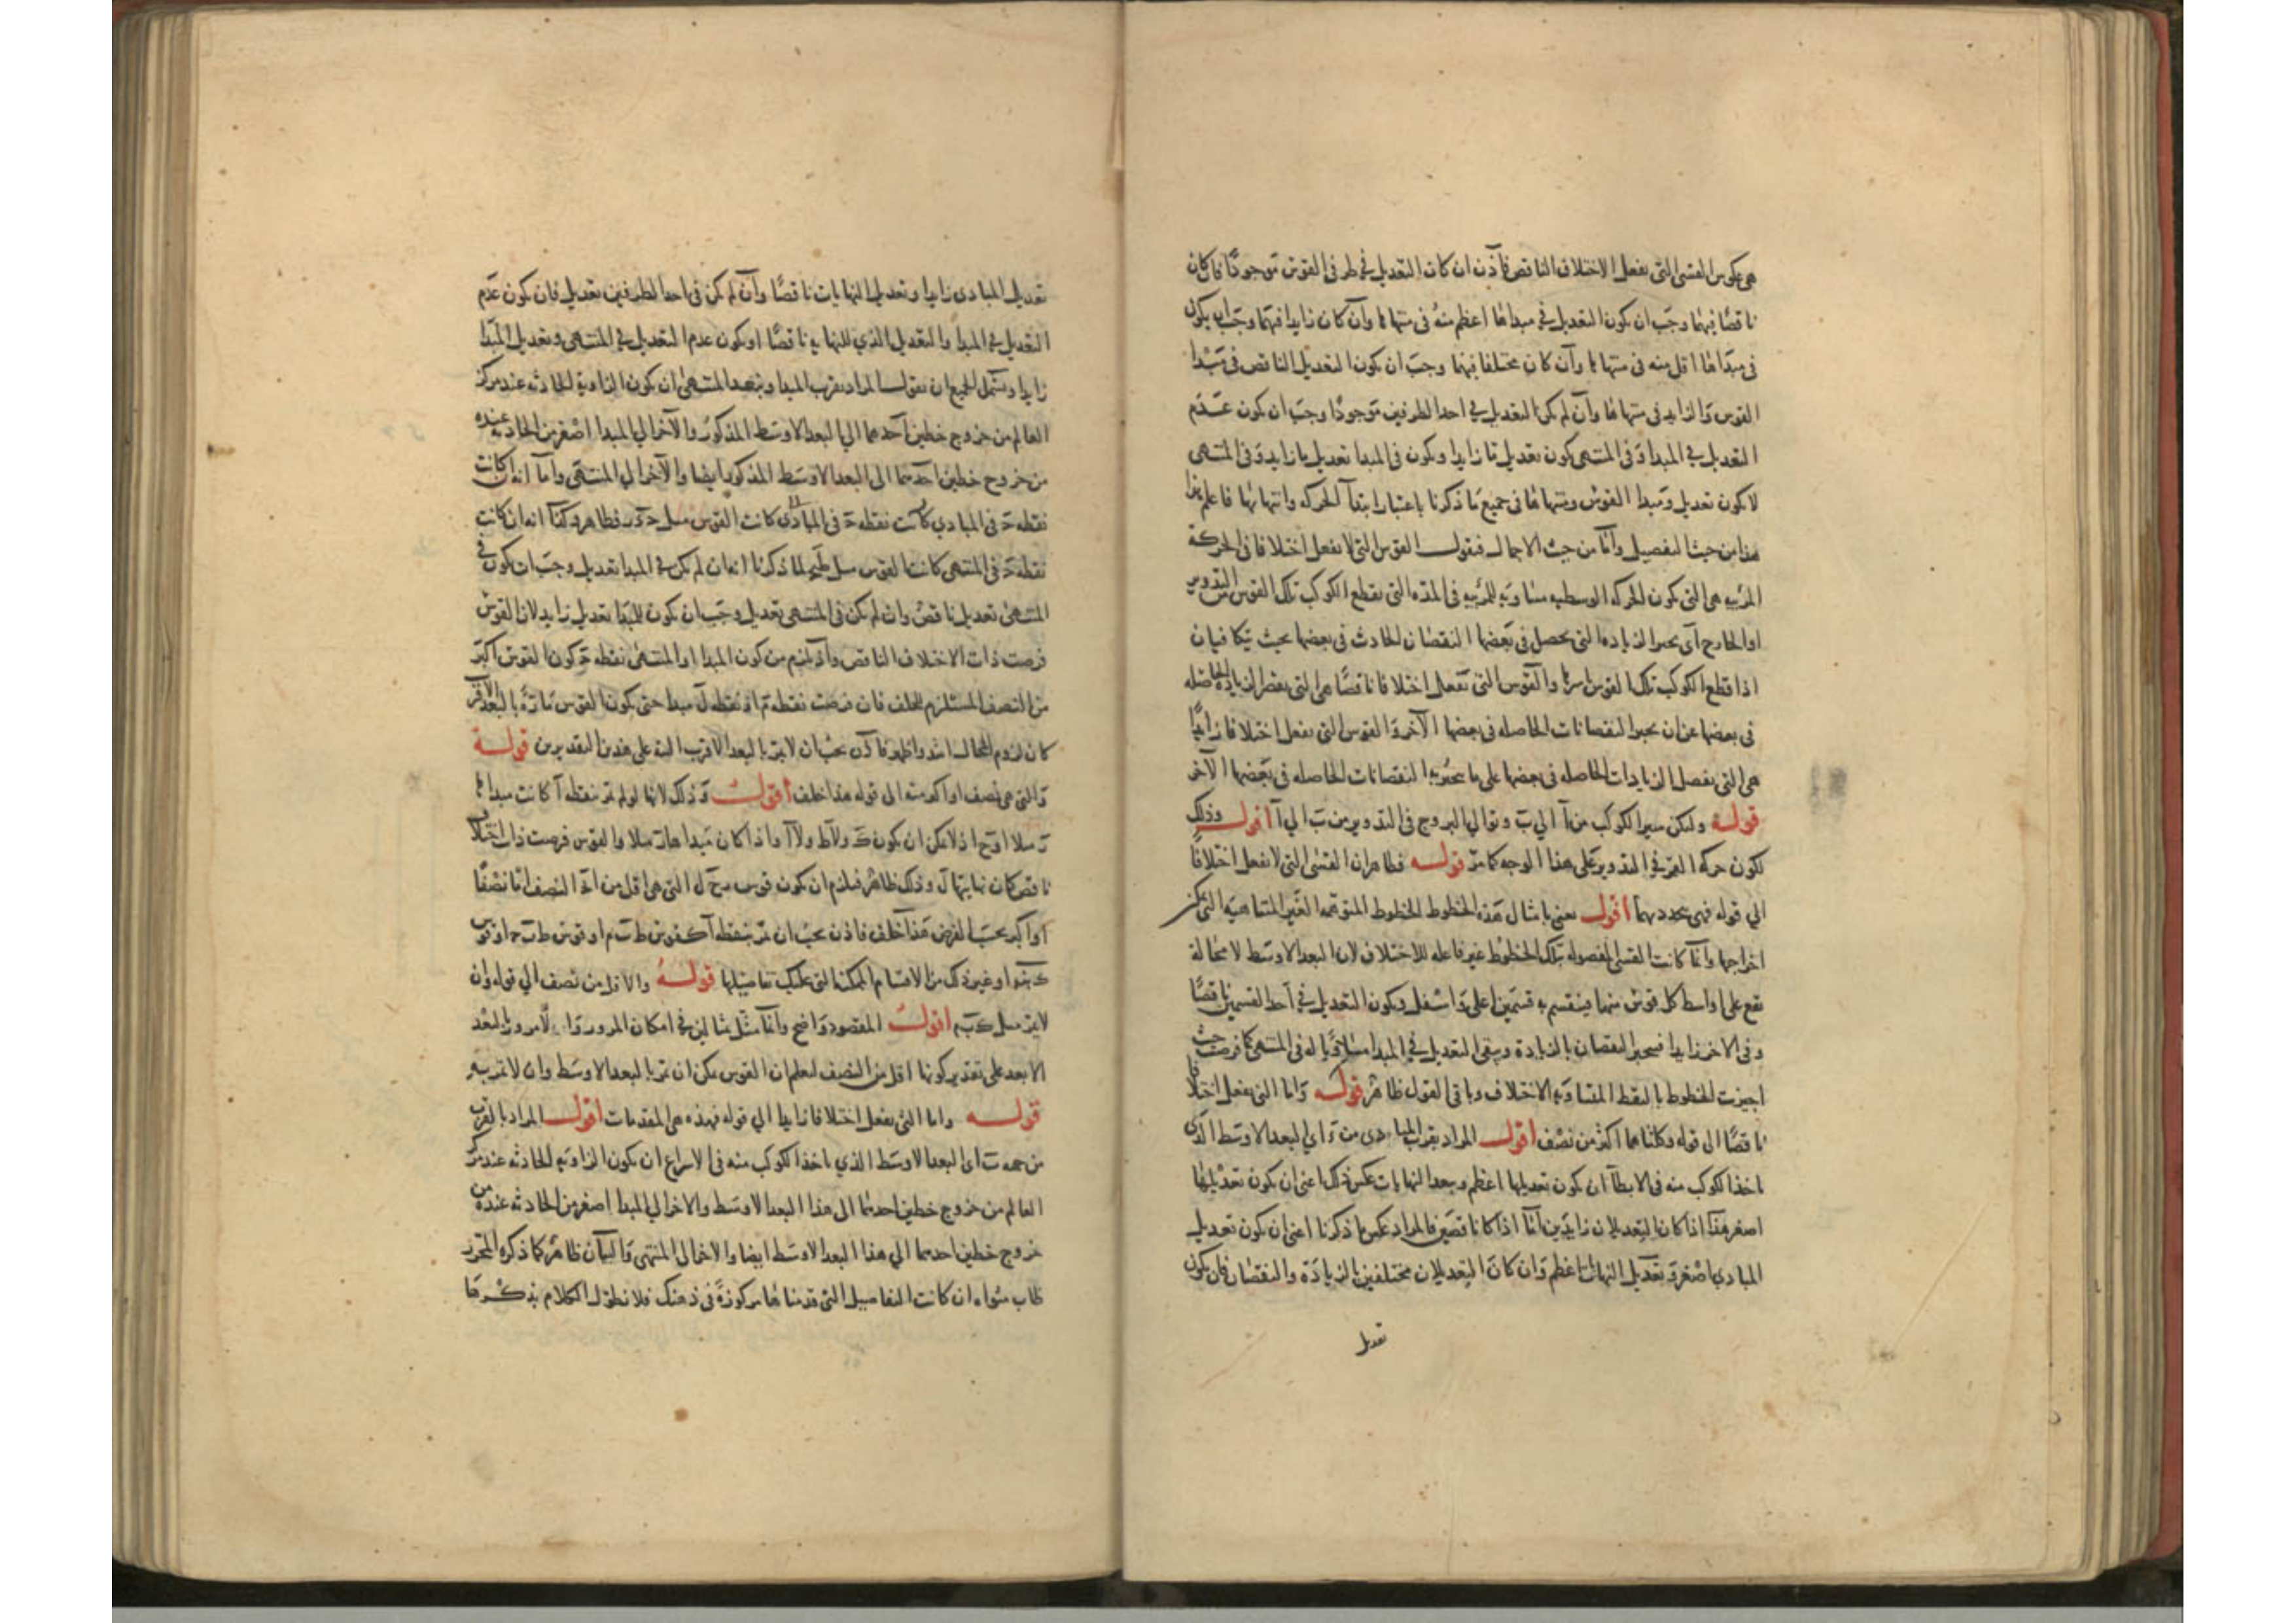 هى عكوس القسى التى يفعل الاختلاف الناقص فاذن ان كانت التعديل فى طرفى القوس موجودًا فان كان
ناقصًا فيهما وجب ان يكون التعديل فى مبداها اعظم منه فى منتهاها وان كان زايدا فيهما وجب ان يكون
فى مبداها اقل منه فى منتهاها وان كان مختلفا فيهما وجب ان يكون التعديل الناقص فى مبدا
القوس والزايد فى منتهاها وان لم يكن التعديل فى احد الطرفين موجودًا وجب ان يكون عدم
التعديل فى المبدا وفى المنتهى يكون تعديل ما زايدا ويكون فى المبدا تعديل ما زايد وفى المنتهى
لا يكون تعديل ومبدا القوس ومنتهاها فى جميع ما ذكرنا باعتبار ابتدآ الحركه وانتهائها فاعلم هذا
هذا من حيث التفصيل واما من حيث الاجمال فيقول القوس التى لا يفعل اختلافا فى الحركة
المرئيه هى التى يكون الحركه الوسطيه مساويه للمرئيه فى المده التى يقطع الكوكب تلك القوس من التدوير
او الخارج اى يجبر الزياده التى يحصل فى بعضها النقصان الحادث فى بعضها بحيث يتكافيان
اذا قطع الكوكب تلك القوس باسرها والقوس التى تفعل اختلافا ناقصًا هى التى يقصر الزياده الحاصله
فى بعضها عن ان يجبر النقصانات الحاصله فى بعضها الآخر والقوس التى يفعل اختلافا زايدًا
هى التى يفضل الزيادات الحاصله فى بعضها على ما يجبر به النقصانات الحاصله فى بعضها الآخر
قوله وليكن سير الكوكب من آ الى ب وتوالى البروج فى التدوير من ب الى آ اقول وذلك
لكون حركه القمر فى التدوير على هذا الوجه كما مر قوله فظاهر ان القسى التى لا يفعل اختلافًا
الى قوله فهى يحددبهما اقول يعنى بامثال هذه الخطوط الخطوط المتوهمه الغير المتناهيه التى يمكن
اخراجها وانما كانت القسى المفصوله بتلك الخطوط غير فاعله للاختلاف لان البعد الاوسط لا محالة
يقع على اواسط كل قوس منها فينقسم به قسمين اعلى واسفل ويكون التعديل فى احد القسمين ناقصًا
وفى الاخر زايدا فيجبر النقصان بالزيادة ويبقى التعديل فى المبدا مساويًا له فى المنتهى كما فرضت حيث
اجيزت الخطوط بالنقط المتساويه الاختلاف وباقى القول ظاهر قوله واما التى يفعل اختلافا
ناقصًا الى قوله وكلتاهما اكثر من نصف اقول المراد بقرب المبادى من اى البعد الاوسط الذى
ياخذ الكوكب منه فى الابطآ ان يكون تعديلها اعظم وبعد النهايات عكس ذلك اعنى ان يكون تعديلها
اصغر هذا اذا كان التعديلان زايدين اما اذا كانا ناقصين فالمراد عكس ما ذكرنا اعنى ان يكون تعديل
المبادى اصغر وتعديل النهايات اعظم وان كان التعديلان مختلفين بالزيادة والنقصان فان يكون
تعديل
تعديل المبادى زايدا وتعديل النهايات ناقصًا وان لم يكن فى احد الطرفين تعديل فان يكون عدم
التعديل فى المبدا والتعديل الذى للنهايه ناقصًا او يكون عدم التعديل فى المنتهى وتعديل المبدا
زايدا ويشمل الجميع ان يقول المراد بقرب المبدا وببعد المنتهى ان يكون الزاوية الحادثه عند مركز
العالم من خروج خطين احدهما الى البعد الاوسط المذكور والآخر الى المبدا اصغر من الحادثه عنده
من خروج خطين احدهما الى البعد الاوسط المذكور ايضا والآخر الى المنتهى واما انه ان كانت
نقطه حَ فى المبادى كانت القوس مثل فظاهر وكذا انه ان كانت
نقطه حَ فى المنتهى كانت القوس مثل لما ذكرنا انه ان لم يكن فى المبدا تعديل وجب ان يكون فى
المنتهى تعديل ناقص وان لم يكن فى المنتهى تعديل وجب ان يكون للمبدا تعديل زايد لان القوس
فرضت ذات الاختلاف الناقص واذ لزم من كون المبدا او المنتهى نقطه حَ كون القوس اكبر
من النصف المستلزم للخلف فان فرضت نقطه م او نقطه ل مبدا حتى يكون القوس مارة بالبعد الاقرب
كان لزوم المحال اشد واظهر فاذن يجب ان لا يمر بالبعد الاقرب البتة على هذين التقديرين قوله
والتى هى نصف او اكثر منه الى قوله هذا خلف اقول وذلك لانها لو لم تمر بنقطه آ كانت مبداها
مثلا او ح اذ لا يمكن ان يكون ولا ط ولا آ واذا كان مبداها مثلا والقوس فرضت ذات اختلاف
ناقص كان نهايتها ل وذلك ظاهر فيلزم ان يكون قوس التى هى اقل من النصف اما نصفًا
او اكبر بحسب الفرض هذا خلف فاذن يجب ان تمر بنقطه آ كقوس ط ب م او قوس ط ب ح او قوس
او غير ذلك من الاقسام الممكنة التى عليك تفاصيلها قوله والاقل من نصف الى قوله وان
لا يمر مثل اقول المقصود واضح وانما مثل مثالين فى امكان المرور واللامرور بالبعد
الابعد على تقدير كونها اقل من النصف ليعلم ان القوس يمكن ان تمر بالبعد الاوسط وان لا تمر به
قوله واما التى يفعل اختلافا زايدا الى قوله فهذه هى المقدمات اقول المراد بالقرب
من جهه ب اى البعد الاوسط الذى ياخذ الكوكب منه فى الاسراع ان يكون الزاويه الحادثه عند مركز
العالم من خروج خطين احدهما الى هذا البعد الاوسط والاخر الى المبدا اصغر من الحادثه عنده من
خروج خطين احدهما الى هذا البعد الاوسط ايضا والاخر الى المنتهى والبيان ظاهر كما ذكره المحرر
طاب مثواه ان كانت التفاصيل التى قدمناها مركوزة فى ذهنك فلا نطول الكلام بذكرها